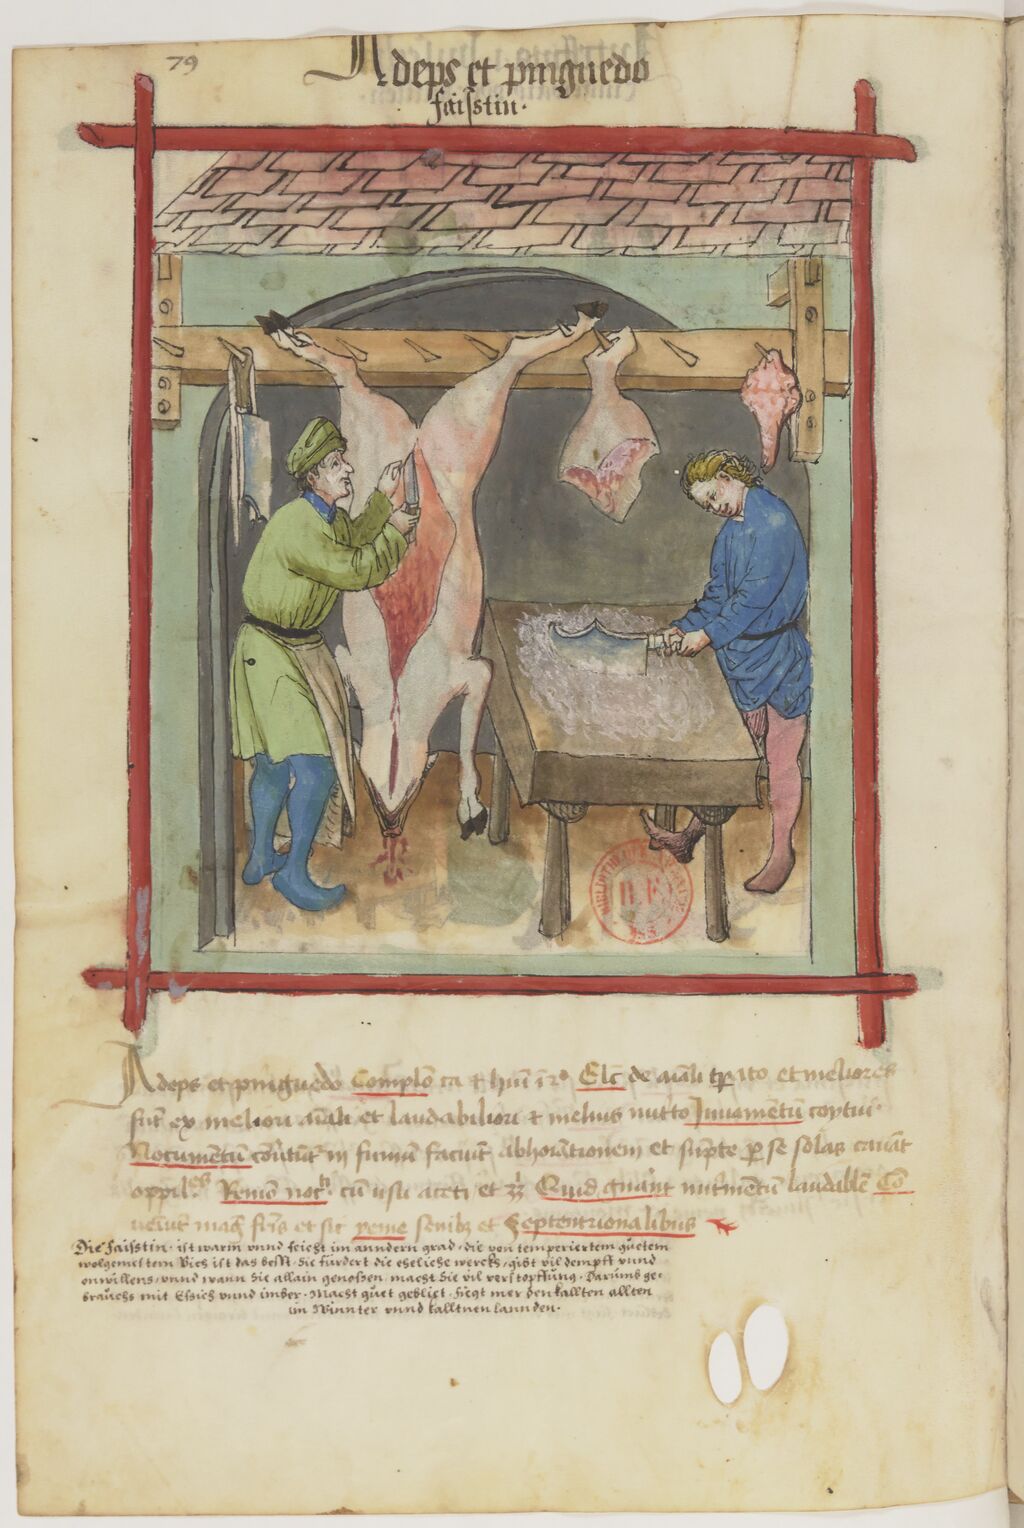 79
Adeps et pinguedo
faisstin.
Adeps et pinguedo Complõ ca & hũi ĩ 2º Elc̃ de aĩali tꝑato et meliores
sũt ex meliori aĩali et laudabiliori & melius nut̃to Juuamentũ coytui.
Nocumentũ cõũtũt̃ in fumũ faciũt abhoĩationem et sũpte ꝑ se solas cauãt
oppil.es Remõ noc.ti cũ usu aceti et Quid gñãnt nut̃mentũ laudablẽ Cõ
ueiũt mag̃ et sic yeme senibꝫ et Septentrionalibus
Die faisstin. ist warm vnnd feicht im anndern grad. die von temperiertem guetem
wolgemesstem Vich ist das besst. Sie fürdert die eheliche werckh. gibt vil dempff vnnd
onwillens. vnnd wann Sie allain genossen. macht Sie vil verstopffung. Darumb ge-
brauchs mit Essich vnnd imber. Macht guet geblüet. fuegt mer den kallten allten
im Winnter vnnd kalltnen lannden.